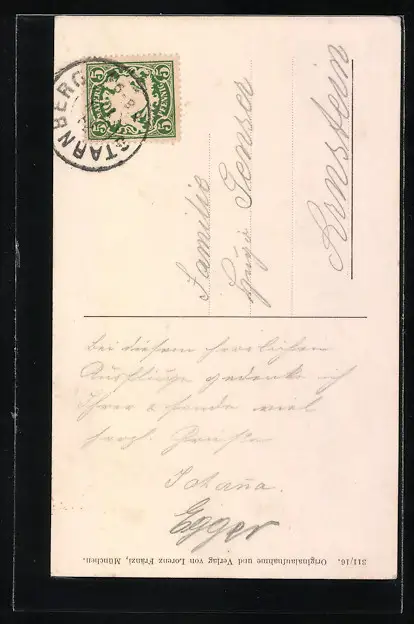 STARNBERG
5 5
BAYERN
5 PFENNIG 5
Familie
Hugo Senser
Arnstein
bei diesem herrlichen
Ausfluge gedenke ich
Ihrer & sende viel
herzl. Grüße
Egger
311/16. Originalaufnahme und Verlag von Lorenz Fränzl, München.